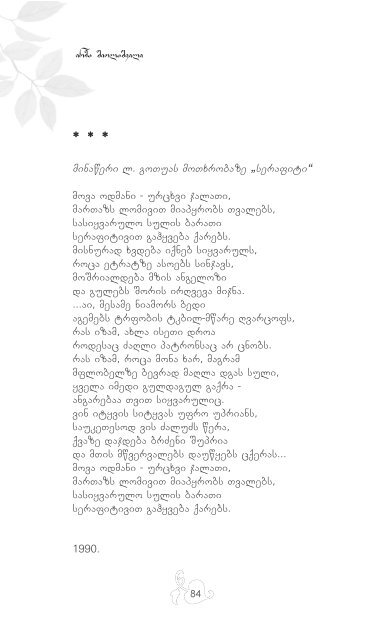 * * *
მინაწერი ლ. გოთუას მოთხრობაზე „სერაფიტი“
მოვა ოდმანი - ურცხვი ჯალათი,
მართაზს ლომივით მიაპყრობს თვალებს,
სასიყვარულო სულის ბარათი
სერაფიტივით გაჰყვება ქარებს.
მისნურად ხვდება იქნებ სიყვარულს,
როცა ეტრატზე ასოებს სინჯავს,
მოშრიალდება მზის ანგელოზი
და გულებს შორის ირღვევა მიჯნა.
...აი, მესამე ნიამორს ბედი
აგემებს ტრფობის ტკბილ-მწარე ღვარცოფს,
რას იზამ, ახლა ისეთი დროა
როდესაც ძაღლი პატრონსაც არ ცნობს.
რას იზამ, როცა მონა ხარ, მაგრამ
მფლობელზე ბევრად მაღლა დგას სული,
ყველა იმედი გულდაგულ გაქრა -
ანგარებაა თვით სიყვარულიც.
ვინ იტყვის სიტყვას უფრო უპრიანს,
საუკეთესოდ ვის ძალუძს წერა,
ქვაზე დაჯდება ბრძენი შუპრია
და მთის მწვერვალებს დაუწყებს ცქერას...
მოვა ოდმანი - ურცხვი ჯალათი,
მართაზს ლომივით მიაპყრობს თვალებს,
სასიყვარულო სულის ბარათი
სერაფიტივით გაჰყვება ქარებს.
1990.
84